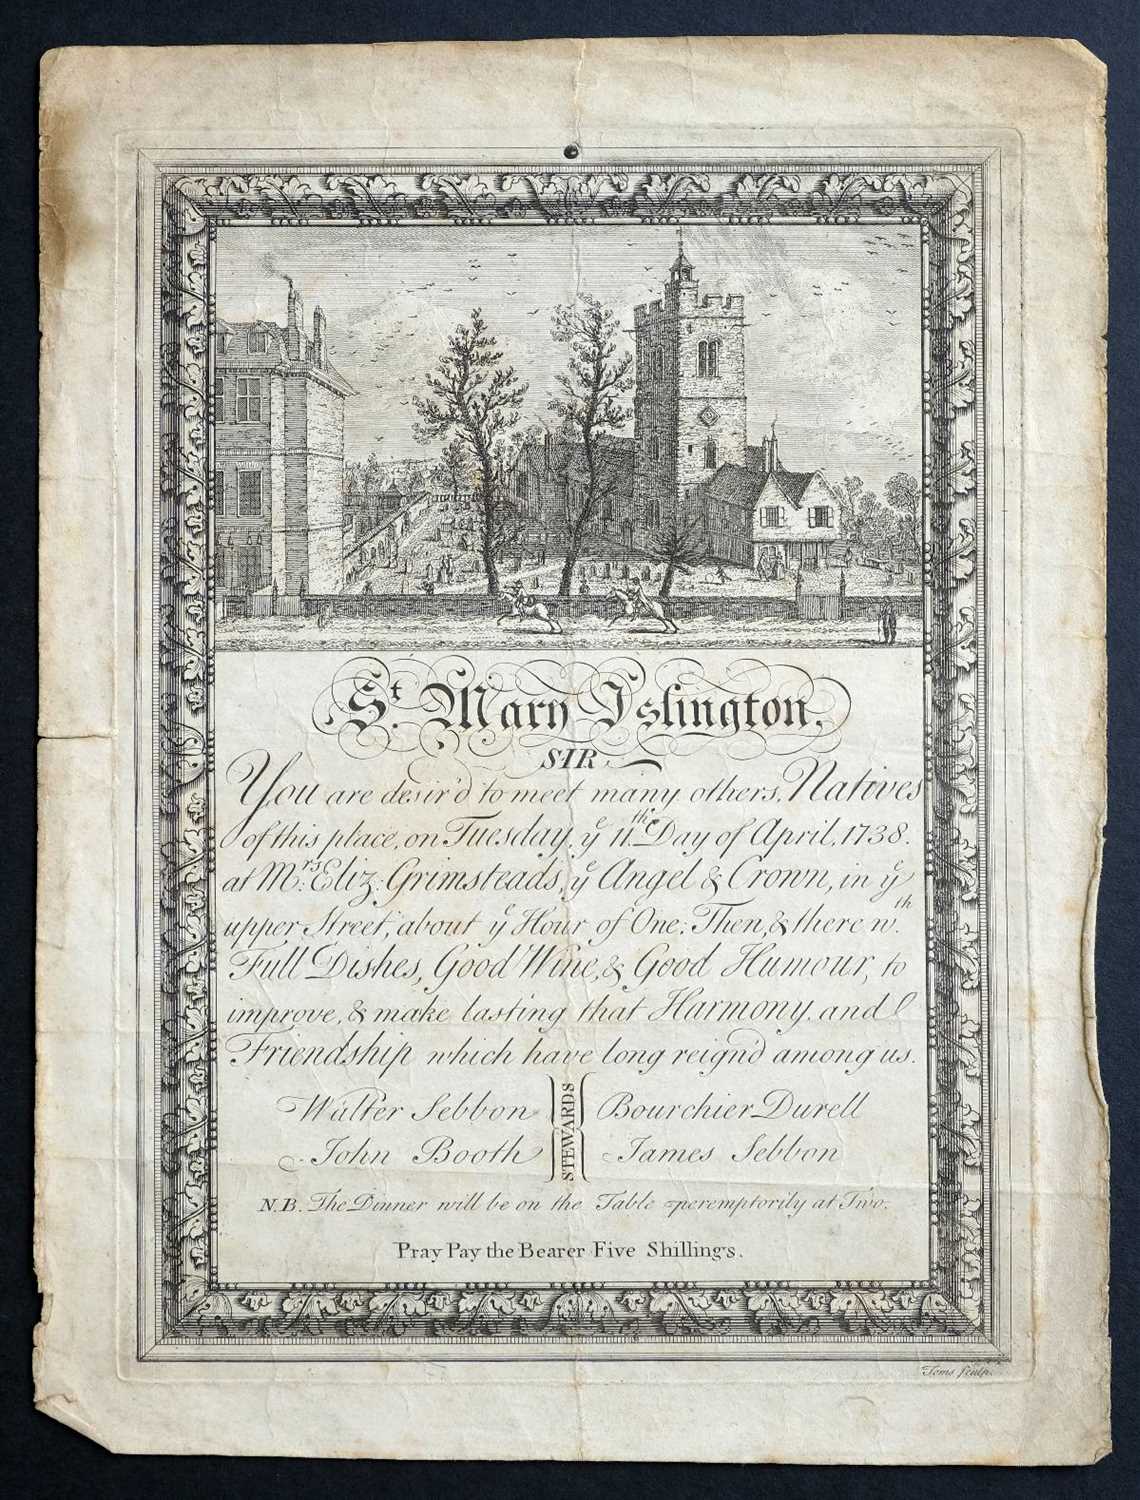 St. Mary Islington.
SIR
You are desir'd to meet many others, Natives
of this place, on Tuesday, ye 11th Day of April, 1738.
at Mrs: Eliz: Grimsteads, ye Angel & Crown, in ye
upper Street, about ye Hour of One; Then, & there wth.
Full Dishes, Good Wine, & Good Humour, to
improve, & make lasting that Harmony, and
Friendship which have long reign'd among us.
Walter Sebbon STEWARDS Bourchier Durell
John Booth James Sebbon
N.B. The Dinner will be on the Table peremptorily at Two.
Pray Pay the Bearer Five Shillings.
Toms sculp.